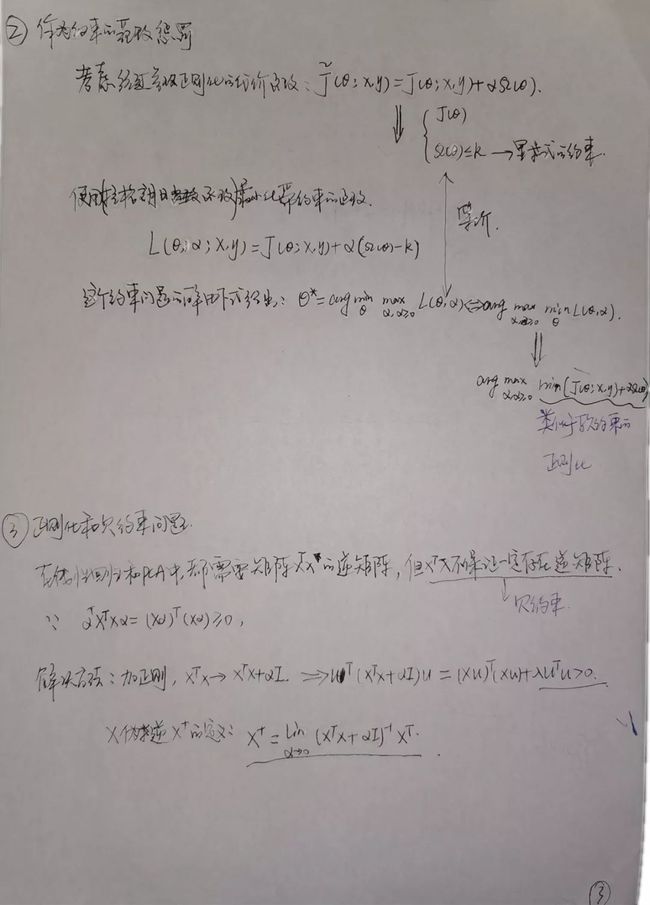 ② 作为约束的范数惩罚
考虑经过参数正则化的代价函数: J̃(θ;X,y)=J(θ;X,y)+αΩ(θ).
⇓ { J(θ)
Ω(θ)≤k → 显式的约束.
使用拉格朗日函数最小化带约束的函数.
等价.
L(θ,α;X,y)=J(θ;X,y)+α(Ω(θ)-k)
这个约束问题的解由下式给出: θ*=arg min_θ max_{α,α≥0} L(θ,α)⇔arg max_{α,α≥0} min_θ L(θ,α).
⇓
arg max_{α,α≥0} min(J(θ;X,y)+αΩ(θ))
类似于软约束的
正则化
③ 正则化和欠约束问题.
在线性回归和PCA中,都需要矩阵XᵀX的逆矩阵,但XᵀX不是说一定存在逆矩阵.
∵ αᵀXᵀXα=(Xα)ᵀ(Xα)≥0,
→ 欠约束.
解决方法:加正则,XᵀX→XᵀX+αI. ⇒uᵀ(XᵀX+αI)u=(Xu)ᵀ(Xu)+λuᵀu>0.
X伪逆X⁺的定义: X⁺=lim_{α→0}(XᵀX+αI)⁻¹Xᵀ.
③